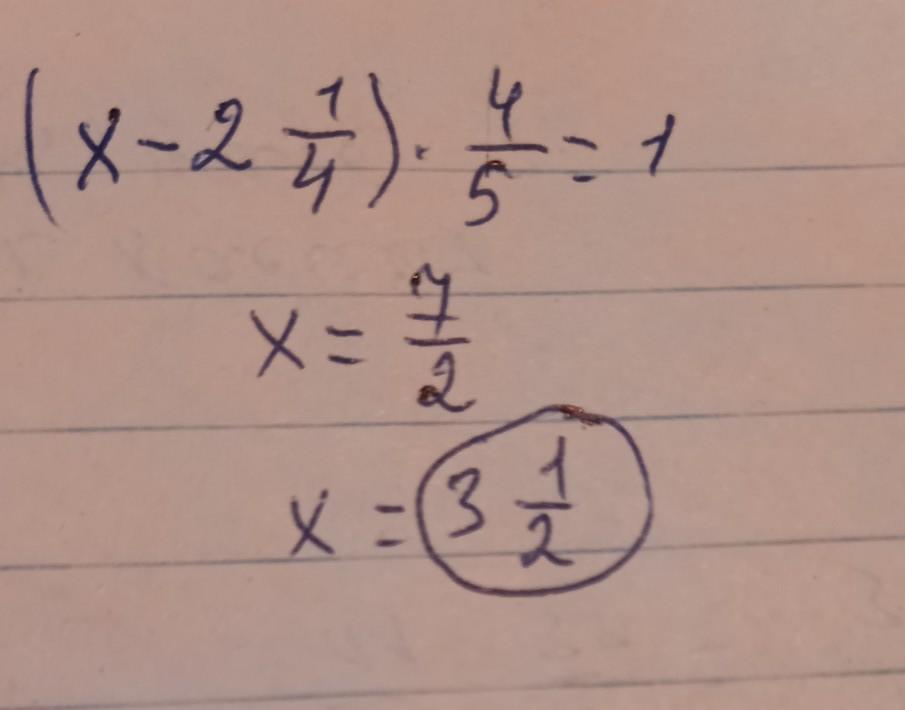 (x - 2 1/4) · 4/5 = 1
x = 7/2
x = 3 1/2